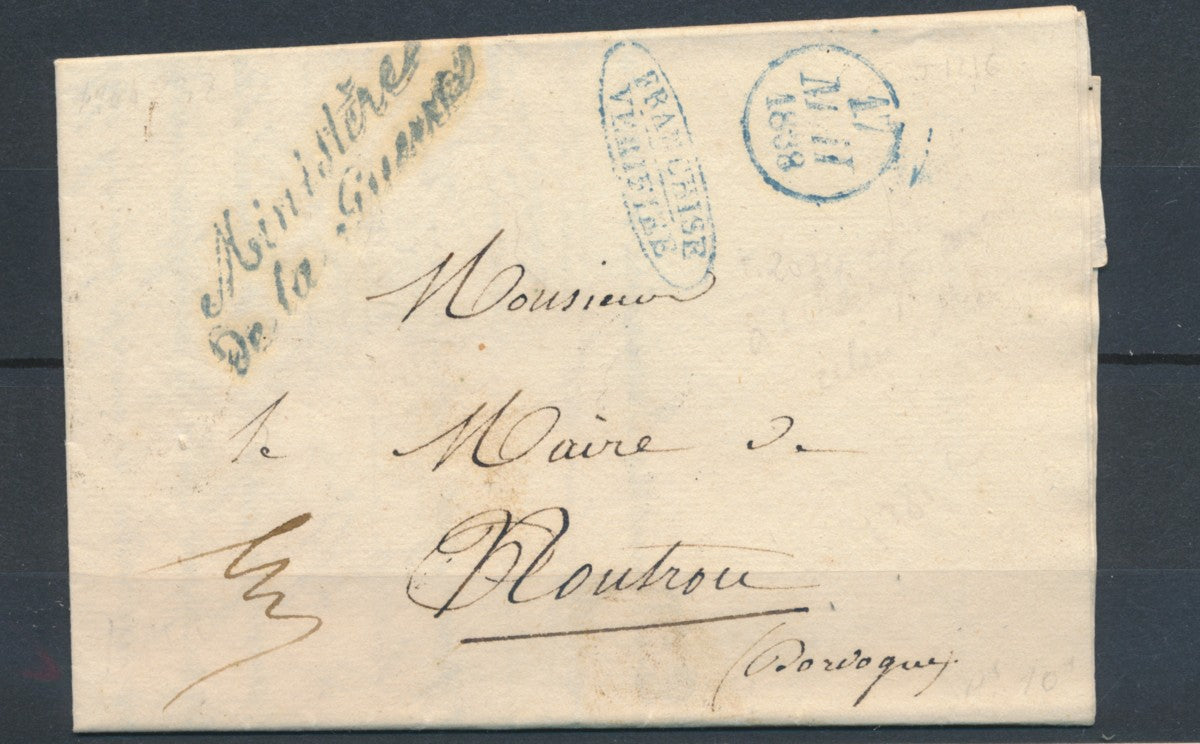 Ministère
De la Guerre
FRANCHISE
VERIFIÉE
17
1838
Monsieur
le Maire de
Nontron
(Dordogne)